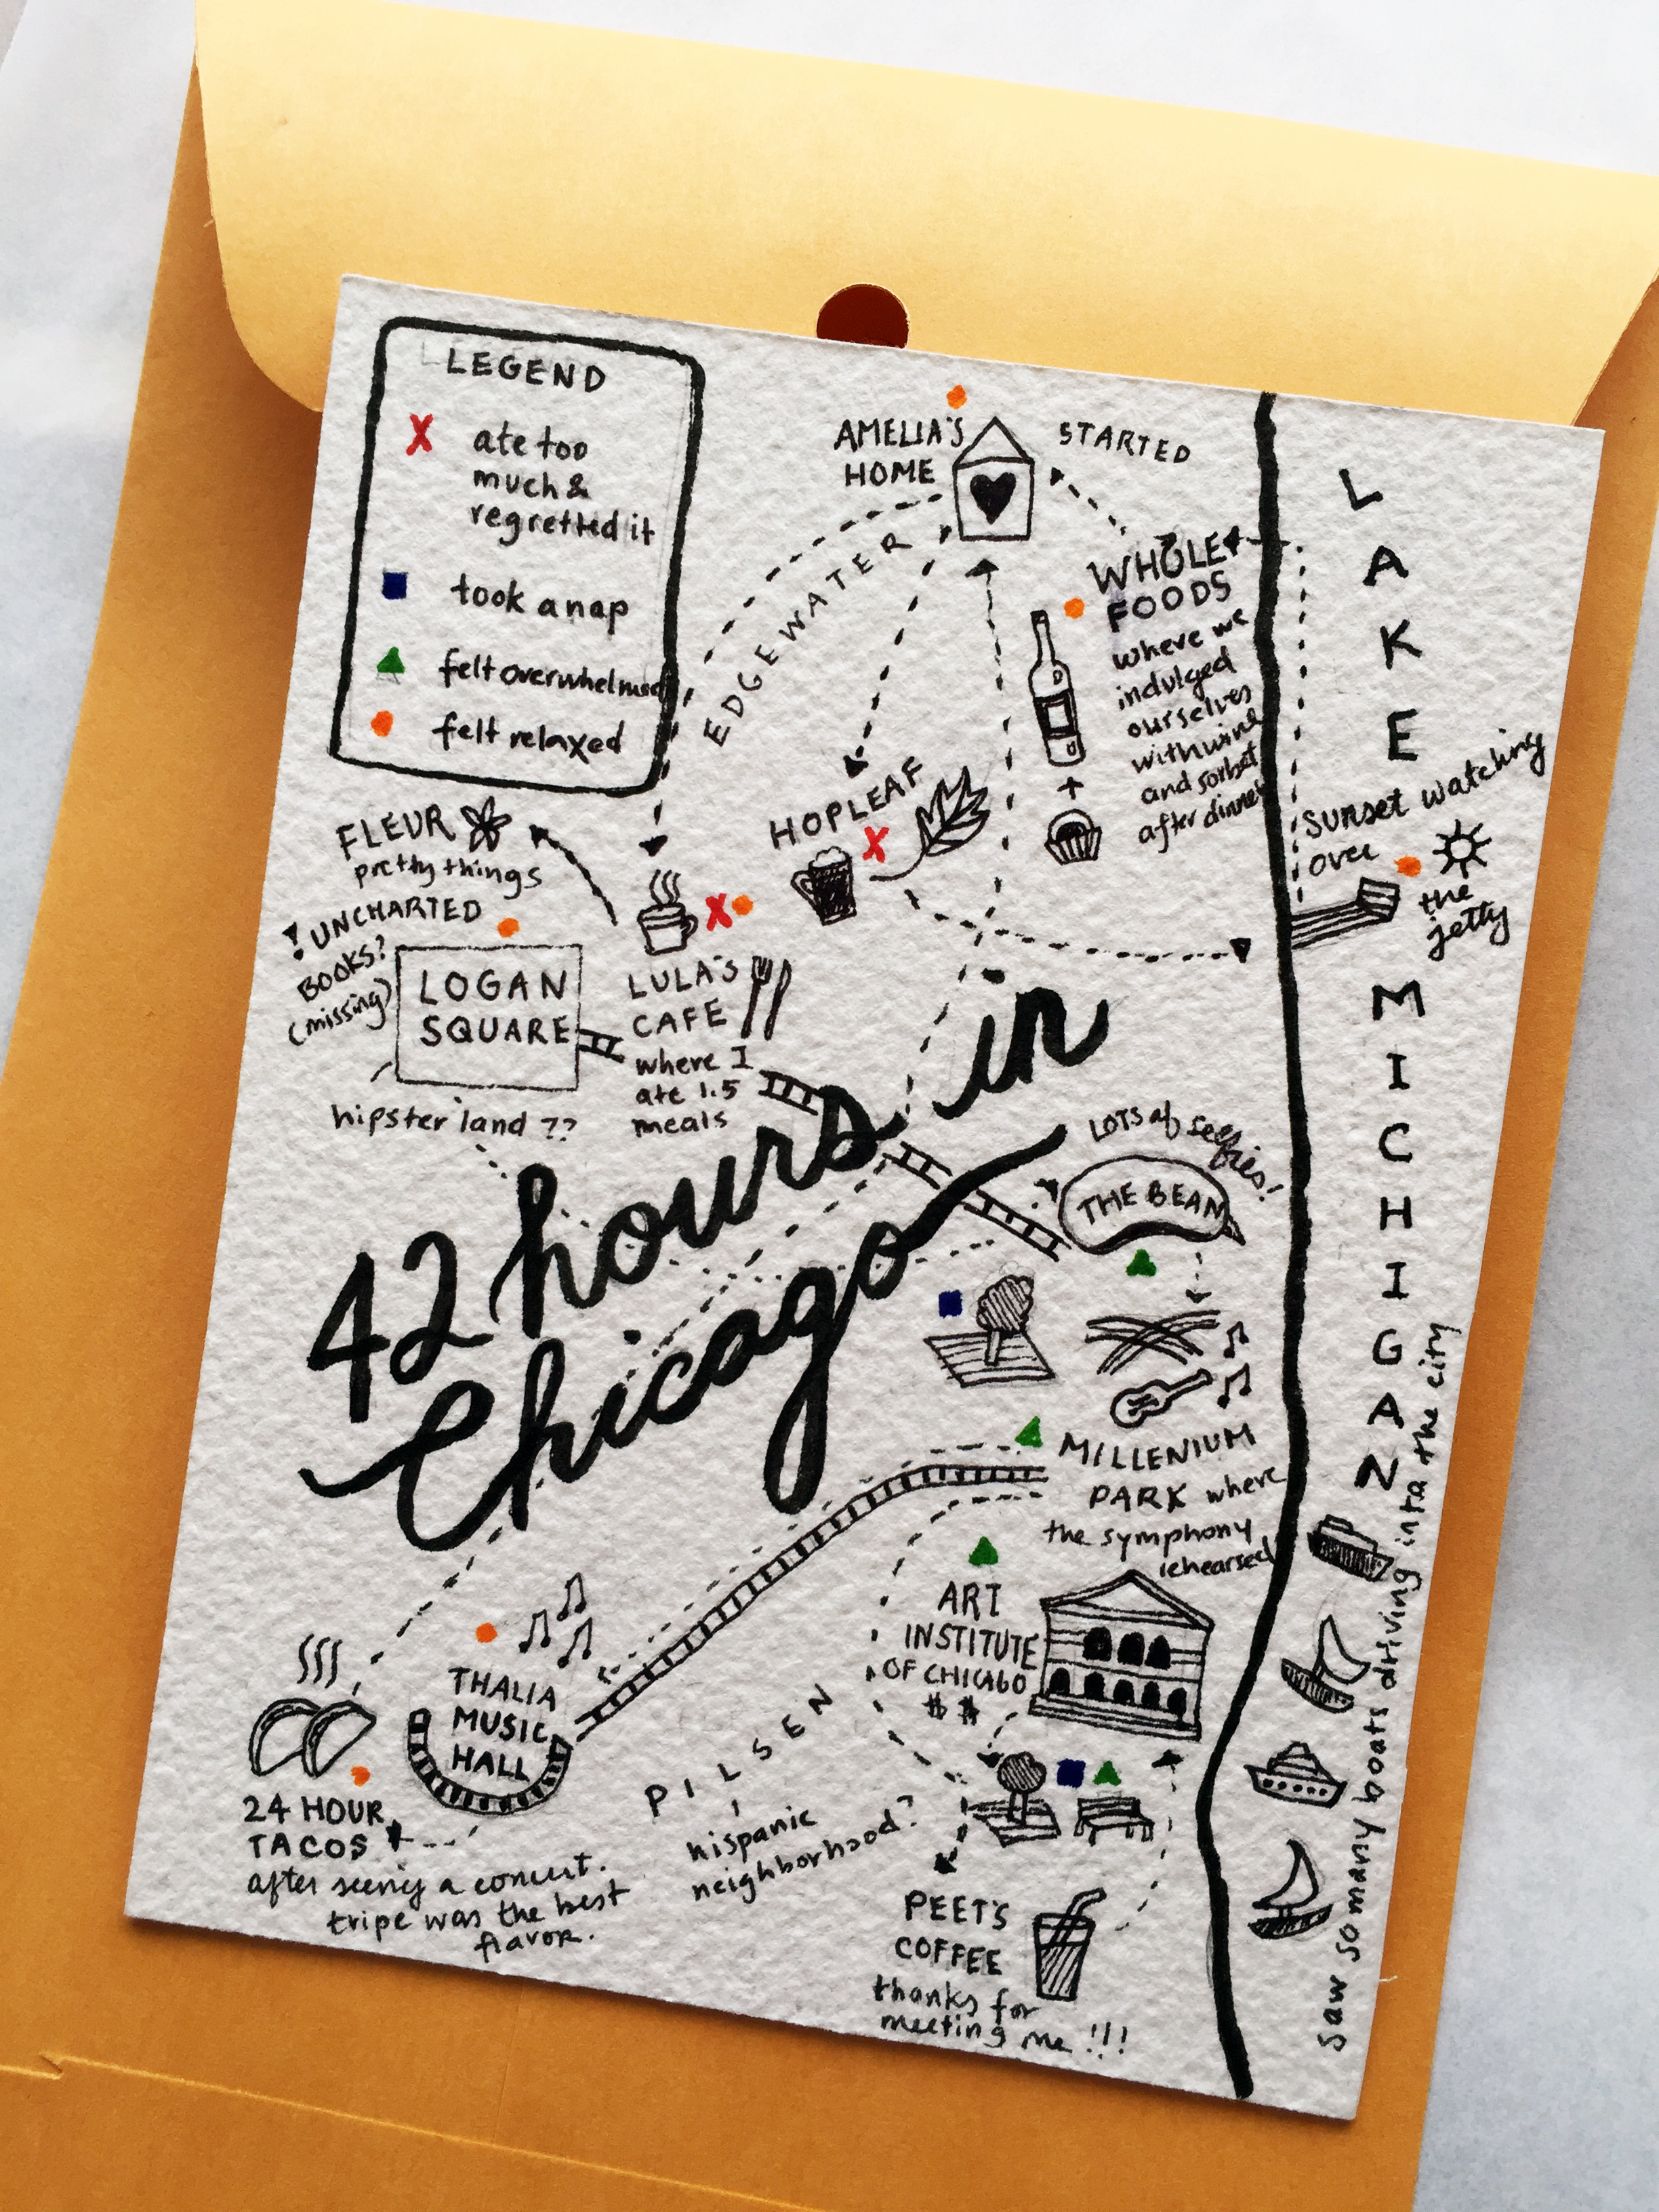 LEGEND
X ate too
much &
regretted it
took a nap
felt overwhelmed
felt relaxed
AMELIA'S
HOME
STARTED
EDGEWATER
WHOLE
FOODS
where we
indulged
ourselves
with wine
+
and sorbet
after dinner
HOPLEAF
X
FLEUR
pretty things
! UNCHARTED
BOOKS?
(missing)
LOGAN
SQUARE
hipster land ??
X
LULA'S
CAFE
where I
ate 1.5
meals
sunset watching
over
the
jetty
LAKE
MICHIGAN
42 hours in
Chicago
LOTS of selfies!
THE BEAN
MILLENIUM
PARK where
the symphony
rehearsed
ART
INSTITUTE
OF CHICAGO
$ $
THALIA
MUSIC
HALL
24 HOUR
TACOS
after seeing a concert.
tripe was the best
flavor.
PILSEN
hispanic
neighborhood?
PEET'S
COFFEE
thanks for
meeting me !!!
saw so many boats driving into the city